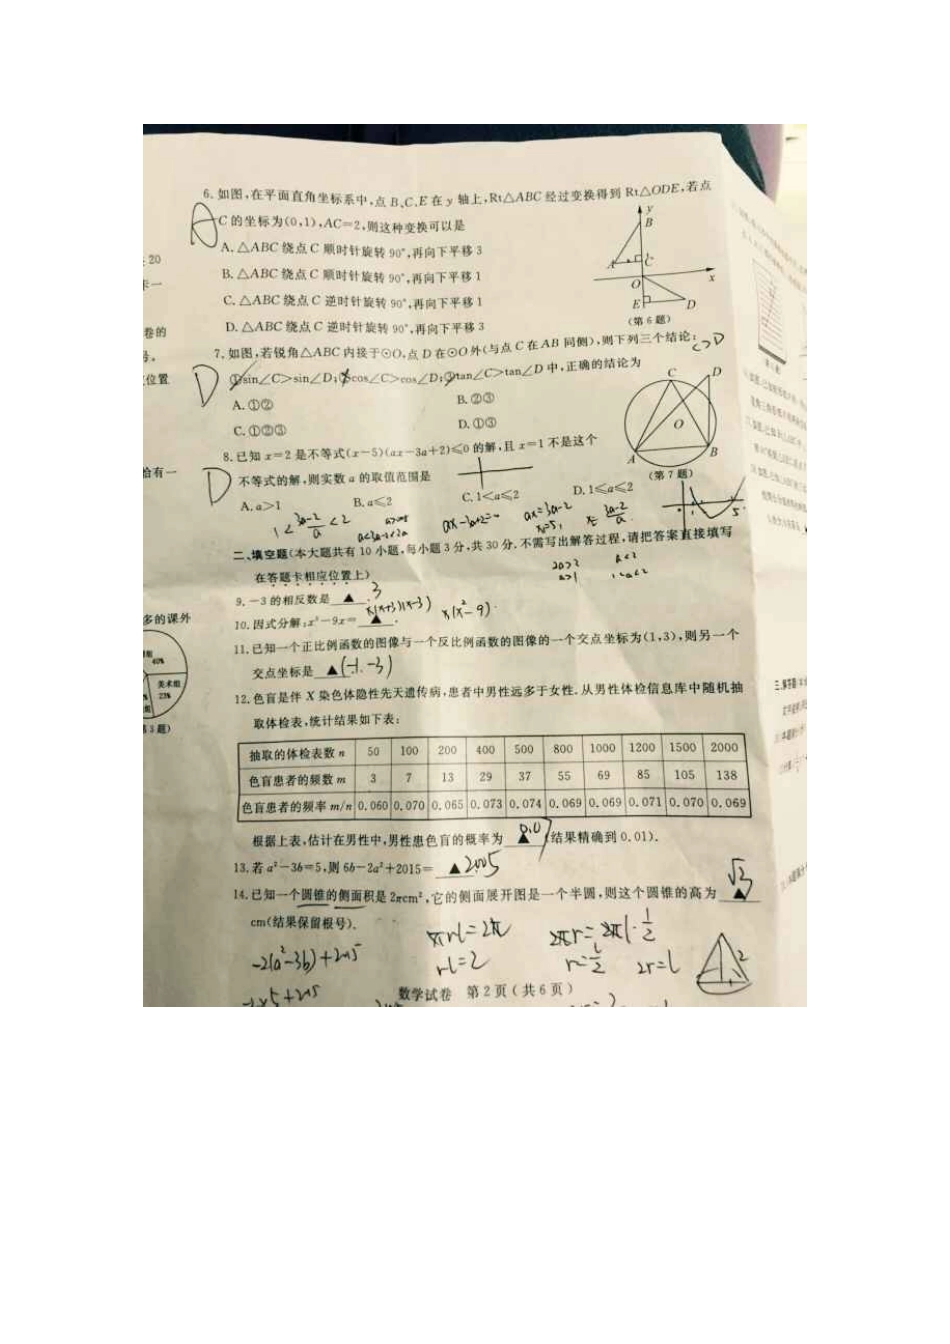 6.如图,在平面直角坐标系中,点 B、C、E 在 y 轴上,Rt△ABC 经过变换得到 Rt△ODE,若点
C 的坐标为(0,1),AC=2,则这种变换可以是
A
A.△ABC 绕点 C 顺时针旋转 90°,再向下平移 3
B.△ABC 绕点 C 顺时针旋转 90°,再向下平移 1
C.△ABC 绕点 C 逆时针旋转 90°,再向下平移 1
D.△ABC 绕点 C 逆时针旋转 90°,再向下平移 3
y
B
A
C
O
x
E
D
(第 6 题)
7.如图,若锐角△ABC 内接于⊙O,点 D 在⊙O 外(与点 C 在 AB 同侧),则下列三个结论:
C>D
D
①sin∠C>sin∠D;②cos∠C>cos∠D;③tan∠C>tan∠D 中,正确的结论为
A.①②
B.②③
C.①②③
D.①③
C
D
O
A
B
(第 7 题)
8.已知 x=2 是不等式(x-5)(ax-3a+2)≤0 的解,且 x=1 不是这个
D
不等式的解,则实数 a 的取值范围是
A.a>1
B.a≤2
C.1<a≤2
D.1≤a≤2
1<3a-2/a<2
a<3a-2<2a
ax-3a+2=0
ax=3a-2
x=5,
x=3a-2/a
1
5
二、填空题(本大题共有 10 小题,每小题 3 分,共 30 分.不需写出解答过程,请把答案直接填写
在答题卡相应位置上)
2a>2
a<2
a>1
1<a<2
9.-3 的相反数是 ▲ . 3
10.因式分解:x³-9x= ▲ . x(x+3)(x-3) x(x²-9)
11.已知一个正比例函数的图像与一个反比例函数的图像的一个交点坐标为(1,3),则另一个
交点坐标是 ▲ (-1.-3)
12.色盲是伴 X 染色体隐性先天遗传病,患者中男性远多于女性.从男性体检信息库中随机抽
取体检表,统计结果如下表:
抽取的体检表数 n 50 100 200 400 500 800 1000 1200 1500 2000
色盲患者的频数 m 3 7 13 29 37 55 69 85 105 138
色盲患者的频率 m/n 0.060 0.070 0.065 0.073 0.074 0.069 0.069 0.071 0.070 0.069
根据上表,估计在男性中,男性患色盲的概率为 ▲ 0.07 (结果精确到 0.01).
13.若 a²-3b=5,则 6b-2a²+2015= ▲ 2005
14.已知一个圆锥的侧面积是 2πcm²,它的侧面展开图是一个半圆,则这个圆锥的高为 ▲ √3
cm(结果保留根号).
πrl=2π
2πr=2πl·1/2
-2(a²-3b)+2015
rl=2
r=l/2
2r=l
2
数学试卷 第 2 页(共 6 页)
20
卷的
号。
位置
恰有一
多的课外
40%
美术组
23%
第 3 题)